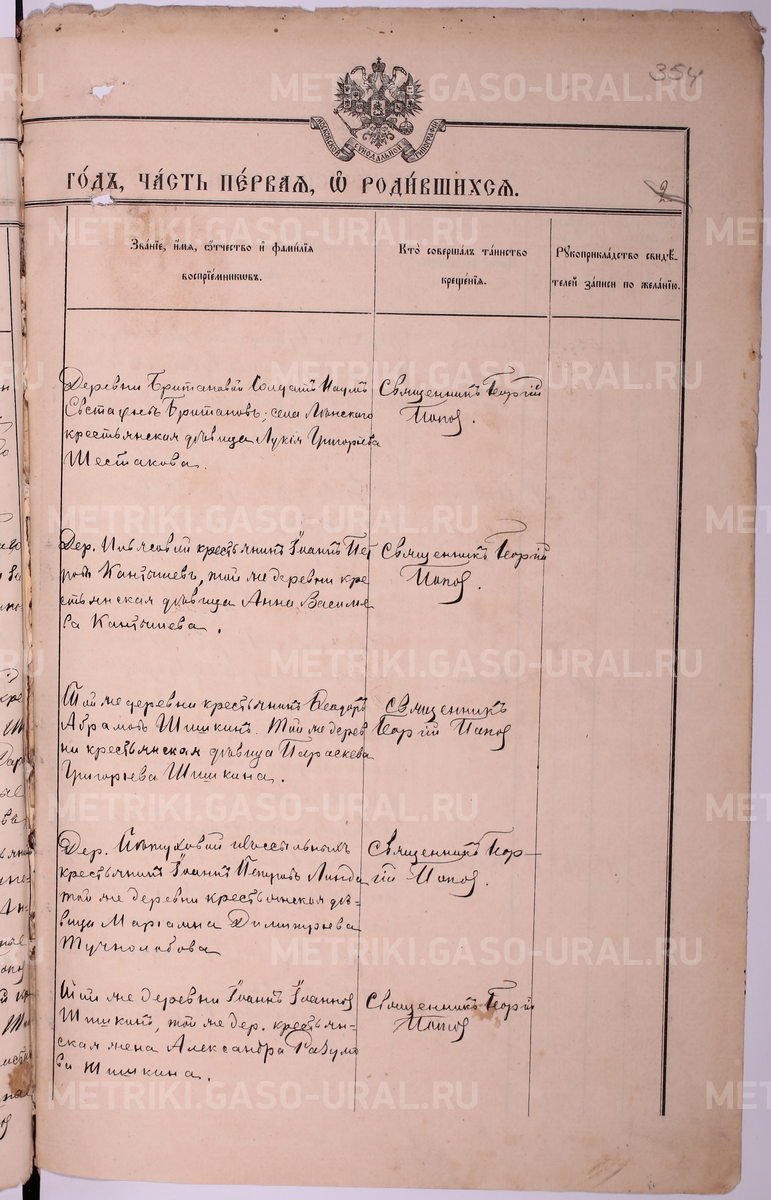 354
МОСКОВСКОЙ СУНОДАЛЬНОЙ ТИПОГРАФІИ
ГОДЪ, ЧАСТЬ ПЕРВАЯ, Ѡ РОДИВШИХСЯ.
2
Званіе, имя, отчество и фамилія
воспріемниковъ.
Кто совершалъ таинство
крещенія.
Рукоприкладство свидѣ-
телей записи по желанію.
Деревни Британовой Солдатъ Наумъ
Евстафьевъ Британовъ; села
крестьянская дѣвица Лукія Григоріева
Шестакова.
Священникъ Георгій
Поповъ.
Дер. крестьянинъ Іоаннъ Пет
ровъ Кантышевъ, той же деревни кре
стьянская дѣвица Анна Василье
ва Кантышева.
Священникъ Георгій
Поповъ.
Той же деревни крестьянинъ Ѳеодоръ
Абрамовъ Шишкинъ. Той же дерев
ни крестьянская дѣвица Параскева
Григорьева Шишкина.
Священникъ
Георгій Поповъ
Дер. Пѣтуховой
крестьянинъ Іоаннъ Петровъ
той же деревни крестьянская дѣ-
вица Маріамна Димитріева
Тучнолобова
Священникъ Геор-
гій Поповъ.
Той же деревни Іоаннъ Іоанновъ
Шишкинъ, той же дер. крестьян-
ская жена Александра
ва Шишкина.
Священникъ Георгій
Поповъ
METRIKI.GASO-URAL.RU